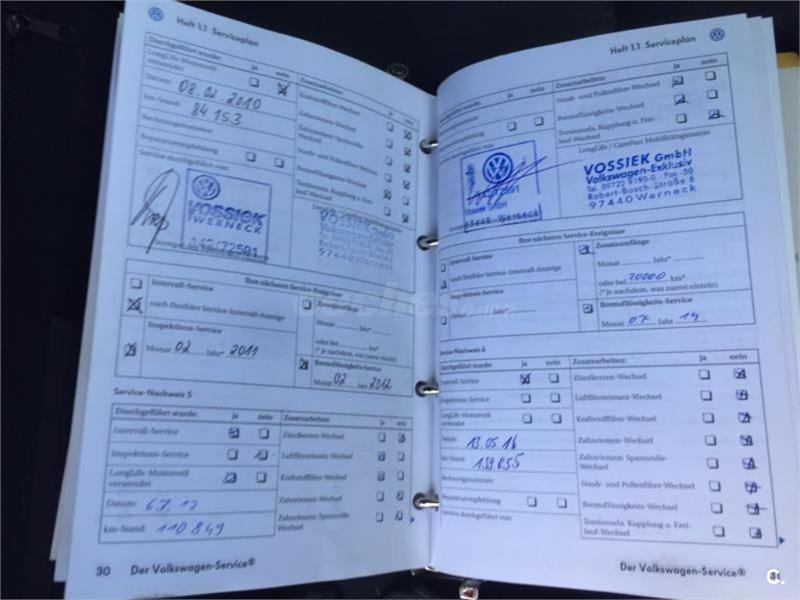 Heft 1.1 Serviceplan
Durchgeführt wurde: ja nein
LongLife-Motorenöl verwendet
Datum: 08.02.2010
km-Stand: 84.153
Rechnungsnummer:
Reparaturempfehlung
Service durchgeführt von:
VOSSIEK
WERNECK
Zusatzarbeiten: ja nein
Kraftstofffilter-Wechsel
Zahnriemen-Wechsel
Zahnriemen: Spannrolle-
Wechsel
Staub- und Pollenfilter-Wechsel
Bremsflüssigkeits-Wechsel
Torsionsela. Kupplung u. Frei-
lauf-Wechsel
VOSSIEK GmbH
97440 Werneck
Ihre nächsten Service-Ereignisse
Intervall-Service
nach flexibler Service-Intervall-Anzeige
Inspektions-Service
Monat 02 Jahr* 2011
Zusatzumfänge
Monat Jahr*
oder bei km*
(* je nachdem, was zuerst eintritt)
Bremsflüssigkeits-Service
Monat 02 Jahr 2012
Service-Nachweis 5
Durchgeführt wurde: ja nein
Intervall-Service
Inspektions-Service
LongLife-Motorenöl
verwendet
Datum: 6.7.12
km-Stand: 110849
Zusatzarbeiten: ja nein
Zündkerzen-Wechsel
Luftfiltereinsatz-Wechsel
Kraftstofffilter-Wechsel
Zahnriemen-Wechsel
Zahnriemen: Spannrolle-
Wechsel
30 Der Volkswagen-Service®
Heft 1.1 Serviceplan
Durchgeführt wurde: ja nein
Rechnungsnummer:
Reparaturempfehlung
Service durchgeführt von:
Vossiek GmbH
97440 Werneck
Zusatzarbeiten: ja nein
Staub- und Pollenfilter-Wechsel
Bremsflüssigkeits-Wechsel
Torsionsela. Kupplung u. Frei-
lauf-Wechsel
LongLife / CarePort Mobilitätsgarantie
VOSSIEK GmbH
Volkswagen-Exklusiv
Tel. 09722 9190-0 Fax -50
Robert-Bosch-Straße 6
97440 Werneck
Ihre nächsten Service-Ereignisse
Intervall-Service
nach flexibler Service-Intervall-Anzeige
Inspektions-Service
Monat Jahr*
Zusatzumfänge
Monat Jahr*
oder bei 20000 km*
(* je nachdem, was zuerst eintritt)
Bremsflüssigkeits-Service
Monat 07 Jahr 14
Service-Nachweis 6
Durchgeführt wurde: ja nein
Intervall-Service
Inspektions-Service
LongLife-Motorenöl
verwendet
Datum: 13.05.16
km-Stand: 139.055
Rechnungsnummer:
Reparaturempfehlung
Service durchgeführt von:
Zusatzarbeiten: ja nein
Zündkerzen-Wechsel
Luftfiltereinsatz-Wechsel
Kraftstofffilter-Wechsel
Zahnriemen-Wechsel
Zahnriemen: Spannrolle-
Wechsel
Staub- und Pollenfilter-Wechsel
Bremsflüssigkeits-Wechsel
Torsionsela. Kupplung u. Frei-
lauf-Wechsel
Der Volkswagen-Service®